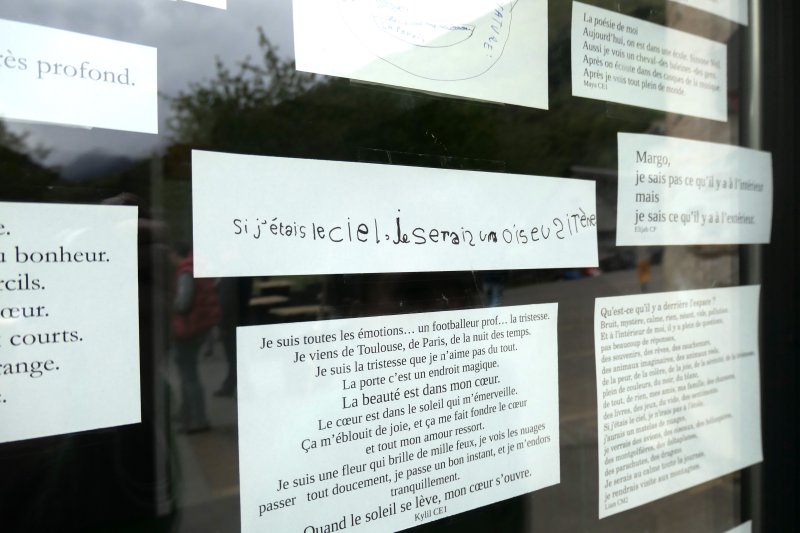 ès profond.
ATURE!
La poésie de moi
Aujourd'hui, on est dans une école. Simone Veil.
Aussi je vois un cheval des
Après on écoute dans des casques de la musique.
Après je suis tout plein de monde.
Maya CE1
Si j'étais le ciel, je serais un oiseu Sirène
Margo,
je sais pas ce qu'il y a à l'intérieur
mais
je sais ce qu'il y a à l'extérieur.
Elijah CP
e.
u bonheur.
rcils.
œur.
courts.
range.
Je suis toutes les émotions… un footballeur prof… la tristesse.
Je viens de Toulouse, de Paris, de la nuit des temps.
Je suis la tristesse que je n'aime pas du tout.
La porte c'est un endroit magique.
La beauté est dans mon cœur.
Le cœur est dans le soleil qui m'émerveille.
Ça m'éblouit de joie, et ça me fait fondre le cœur
et tout mon amour ressort.
Je suis une fleur qui brille de mille feux, je vois les nuages
passer tout doucement, je passe un bon instant, et je m'endors
tranquillement.
Quand le soleil se lève, mon cœur s'ouvre.
Kylil CE1
Qu'est-ce qu'il y a derrière l'espace ?
Bruit, mystère, calme, rien, néant, vide, pollution.
Et à l'intérieur de moi, il y a plein de questions,
pas beaucoup de réponses,
des souvenirs, des rêves, des cauchemars,
des animaux imaginaires, des animaux réels,
de la peur, de la colère, de la joie, de la serenité, de la tristesse,
plein de couleurs, du noir, du blanc,
de tout, de rien, mes amis, ma famille, des chansons,
des livres, des jeux, du vide, des sentiments.
Si j'étais le ciel, je n'irais pas à l'école.
j'aurais un matelas de nuages,
je verrais des avions, des oiseaux, des hélicoptères,
des montgolfières, des deltaplanes,
des parachutes, des dragons.
Je serais au calme toute la journée,
je rendrais visite aux montagnes.
Liam CM2